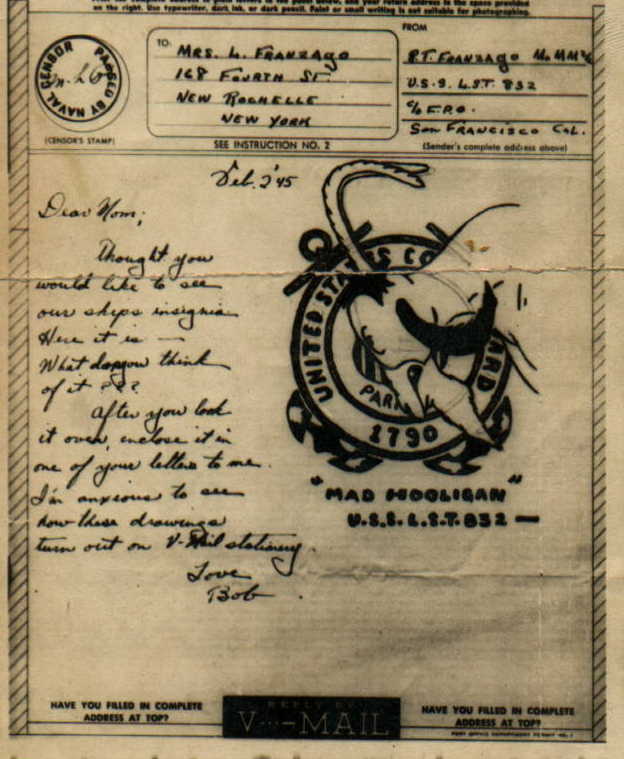 on the right. Use typewriter, dark ink, or dark pencil. Faint or small writing is not suitable for photographing.
PASSED BY NAVAL CENSOR
(CENSOR'S STAMP)
TO:
MRS. L. FRANZAGO
168 FOURTH ST.
NEW ROCHELLE
NEW YORK
SEE INSTRUCTION NO. 2
FROM
R.T. FRANZAGO MoMM 2/c
U.S.S. L.S.T. 832
c/o F.P.O.
SAN FRANCISCO CAL.
(Sender's complete address above)
Feb. 2 '45
Dear Mom;
Thought you
would like to see
our ships insignia
Here it is —
What do you think
of it ???
After you look
it over, enclose it in
one of your letters to me.
I'm anxious to see
how these drawings
turn out on V-Mail stationery.
Love
Bob
UNITED STATES CO ARD
PAR
1790
"MAD HOOLIGAN"
U.S.S. L.S.T. 832 —
HAVE YOU FILLED IN COMPLETE
ADDRESS AT TOP?
REPLY BY
V···—MAIL
HAVE YOU FILLED IN COMPLETE
ADDRESS AT TOP?